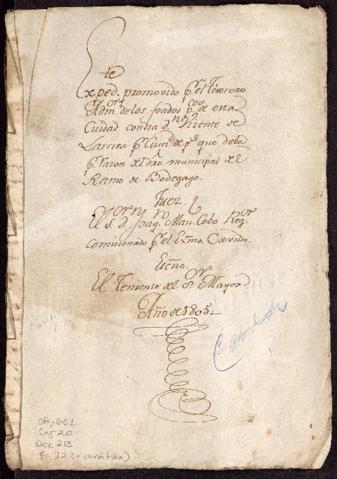 Expedte promovido pr. el Tesorero
Admor. de los fondos pcos. de esta
Ciudad contra Dn. Vicente de
Larrea pr. Cantd. de ps. que debe
pr. razon del dro. municipal del
Ramo de Bodegage.
Juez
El Sor. D. Joaq. Man. Cobo Regor.
comisionado pr. el Exmo. Cavdo.
Escno.
El Teniente del Sor. Mayor
Año de 1805
CA-GC1
Caj 20
Doc 213
F. 12 (+ carátula)